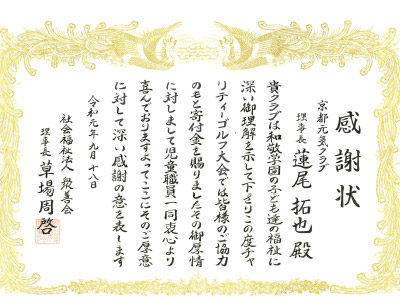 感謝状
京都元気クラブ
理事長 蓮尾拓也殿
貴クラブは和敬学園の子ども達の福祉に
深い御理解を示して下さりこの度チャ
リティーゴルフ大会では皆様のご協力
のもと寄付金を賜りましたその御厚情
に対しまして児童職員一同衷心より
喜んでおりますよってここにそのご厚意
に対して深い感謝の意を表します
令和元年九月十八日
社会福祉法人 積善会
理事長 草場周啓